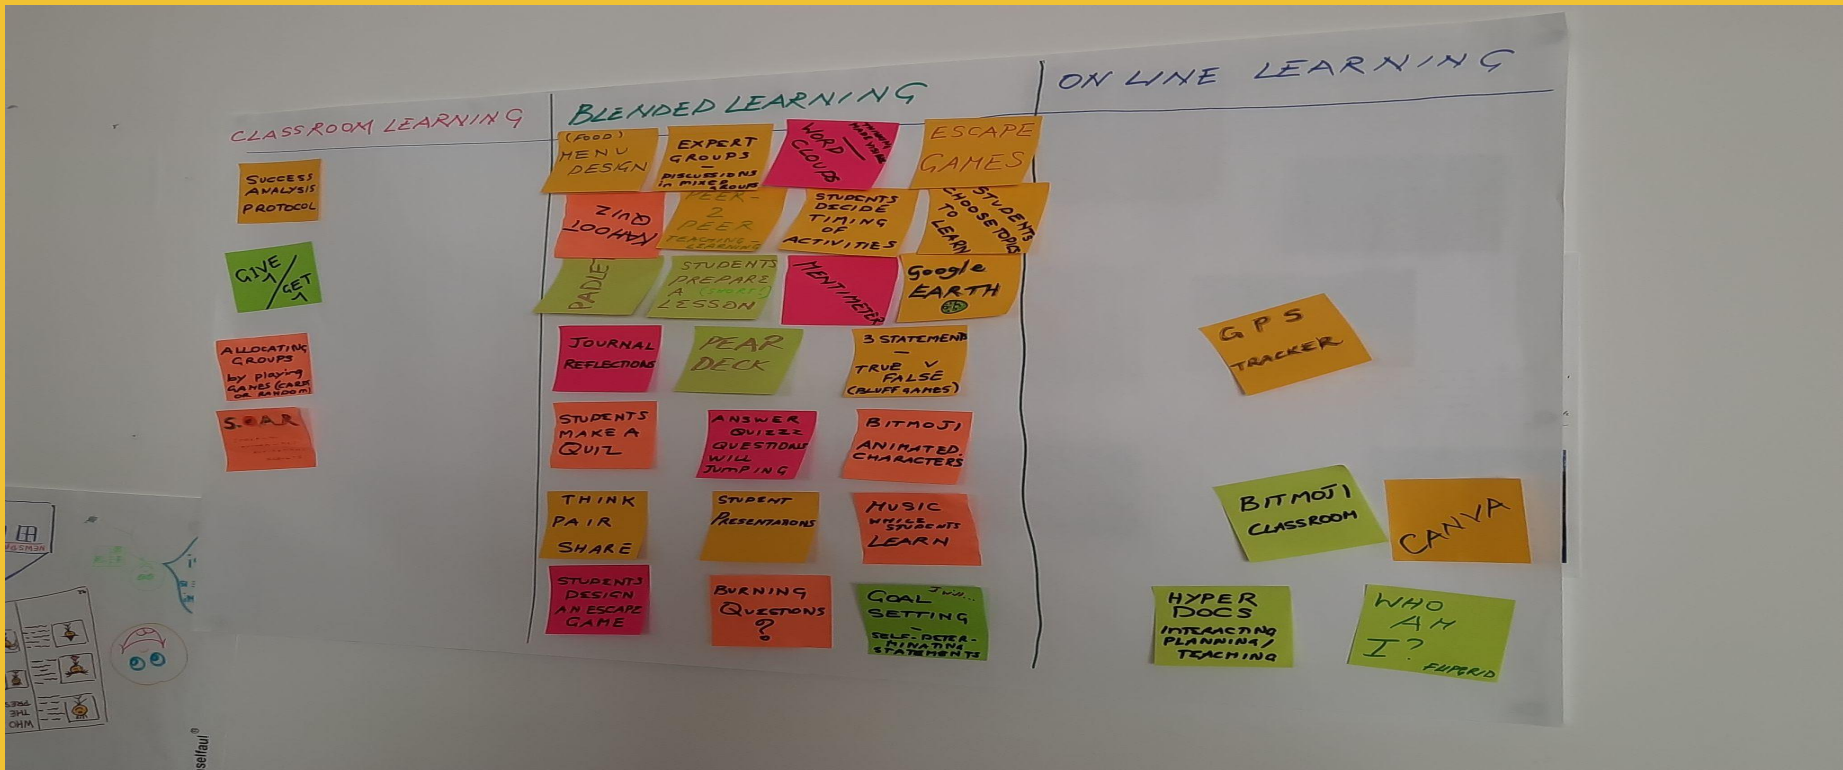 CLASSROOM LEARNING
SUCCESS
ANALYSIS
PROTOCOL
GIVE 1/
GET
1
ALLOCATING
GROUPS
by playing
GAMES (CARDS
OR RANDOM)
S.O.A.R
BLENDED LEARNING
(FOOD)
MENU
DESIGN
EXPERT
GROUPS
—
DISCUSSIONS
in MIXED
GROUPS
WORD
CLOUDS
—
THINKING
MADE VISIBLE
ESCAPE
GAMES
KAHOOT
QUIZ
PEER-
2
PEER
TEACHING-
LEARNING
STUDENTS
DECIDE
TIMING
OF
ACTIVITIES
STUDENTS
CHOOSE TOPICS
TO
LEARN
PADLET
STUDENTS
PREPARE
A (SHORT!)
LESSON
MENTIMETER
Google
EARTH
JOURNAL
REFLECTIONS
PEAR
DECK
3 STATEMENT
—
TRUE V
FALSE
(BLUFF GAMES)
STUDENTS
MAKE A
QUIZ
ANSWER
QUIZZZ
QUESTIONS
WILL
JUMPING
BITMOJI
ANIMATED
CHARACTERS
THINK
PAIR
SHARE
STUDENT
PRESENTATIONS
MUSIC
WHILE STUDENTS
LEARN
STUDENTS
DESIGN
AN ESCAPE
GAME
BURNING
QUESTIONS
?
GOAL I will...
SETTING
—
SELF-DETER-
MINATING
STATEMENTS
ON LINE LEARNING
GPS
TRACKER
BITMOJI
CLASSROOM
CANVA
HYPER
DOCS
INTERACTING
PLANNING/
TEACHING
WHO
AM
I?
FLIPGRID
WHO
THE
selfaul®